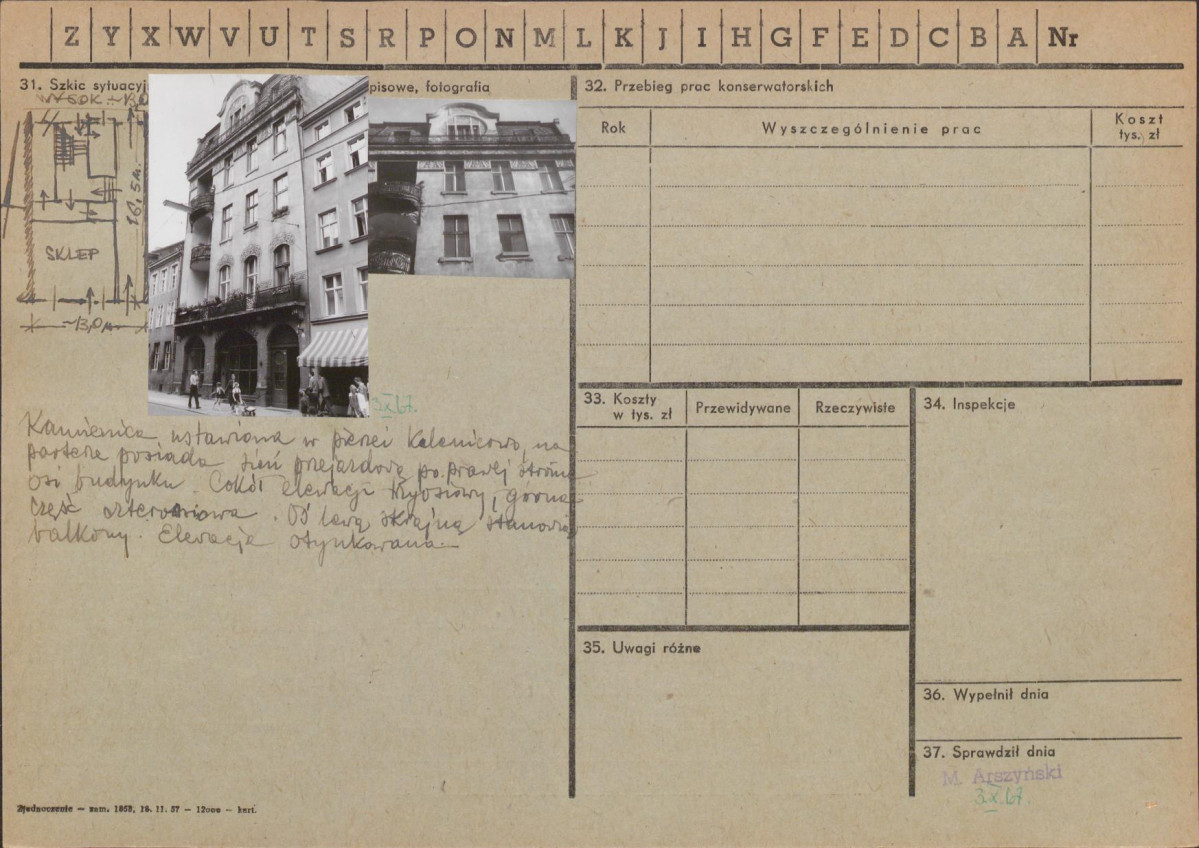 Z Y X W V U T S R P O N M L K J I H G F E D C B A Nr
31. Szkic sytuacyj
pisowe, fotografia
WYSOK. ~
16.5m.
SKLEP
~13,0 m
3.X.67.
Kamienica ustawiona w pierzei kalenicowo, na
parterze posiada sień przejazdową po prawej stronie
osi budynku. Cokół elewacji trzyosiowy, górna
część czteroosiowa. Oś lewą skrajną stanowią
balkony. Elewacja otynkowana.
Zjednoczenie — zam. 1858, 16. 11. 57 — 12000 — kart.
32. Przebieg prac konserwatorskich
Rok
Wyszczególnienie prac
Koszt
tys. zł
33. Koszty
w tys. zł
Przewidywane
Rzeczywiste
34. Inspekcje
35. Uwagi różne
36. Wypełnił dnia
37. Sprawdził dnia
M. Arszyński
3.X.67.